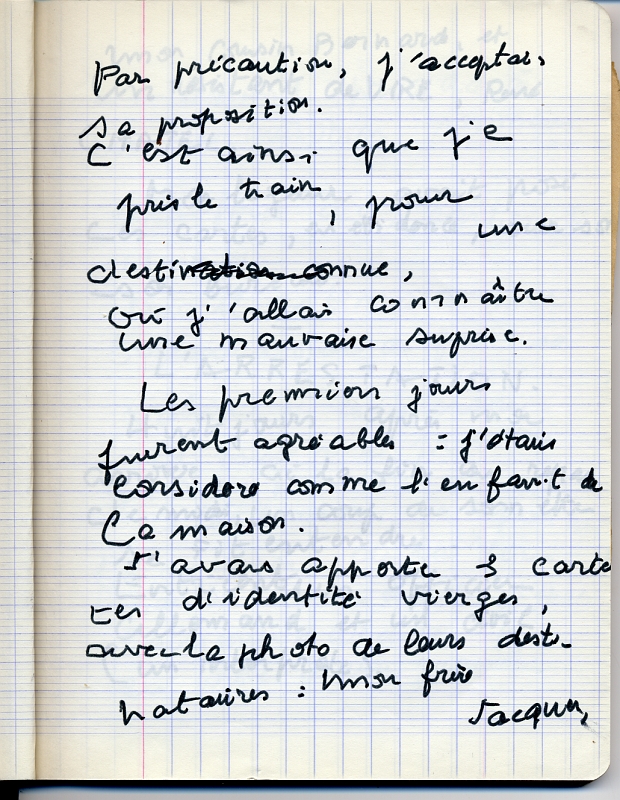 Par précaution, j'acceptais
sa proposition.
C'est ainsi que je
pris le train, pour
une
destination connue,
où j'allais connaître
une mauvaise surprise.
Les premiers jours
furent agréables : j'étais
considéré comme l'enfant de
la maison.
J'avais apporté 3 carte
tes d'identité vierges,
avec la photo de leurs desti-
nataires : mon frère
Jacques,